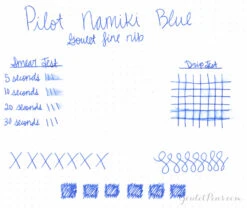 Pilot Namiki Blue
Goulet fine nib
Smear Test
Drip Test
5 seconds
10 seconds
20 seconds
30 seconds
XXXXXXX
GouletPens.com